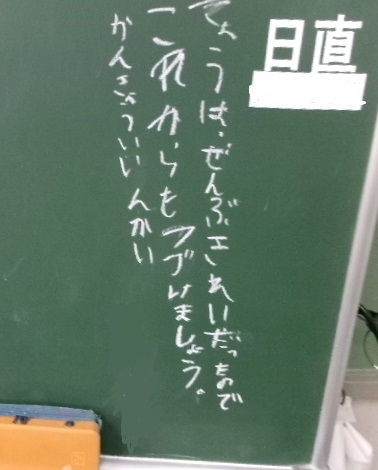 日直
きょうは、ぜんぶきれいだったので
これからもつづけましょう。
かんきょういいんかい